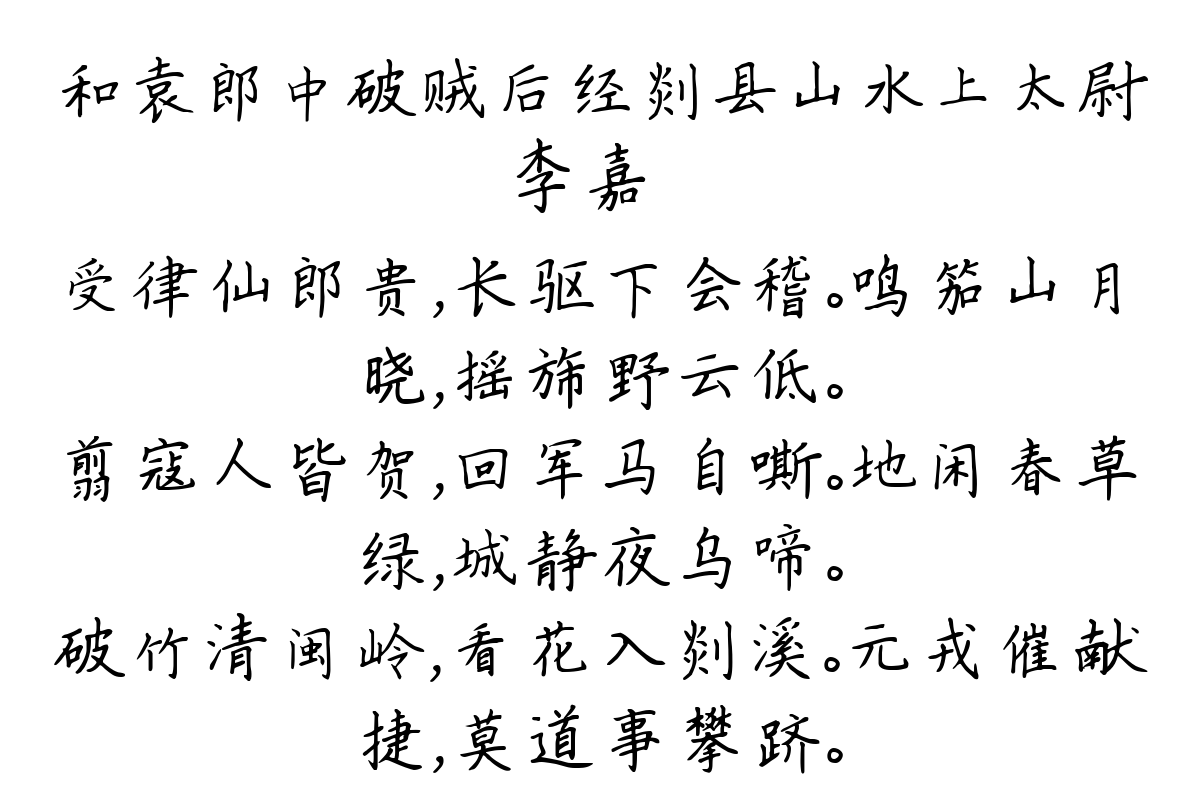 和袁郎中破贼后经剡县山水上太尉
李嘉
受律仙郎贵,长驱下会稽。鸣笳山月
晓,摇旆野云低。
翦寇人皆贺,回军马自嘶。地闲春草
绿,城静夜乌啼。
破竹清闽岭,看花入剡溪。元戎催献
捷,莫道事攀跻。